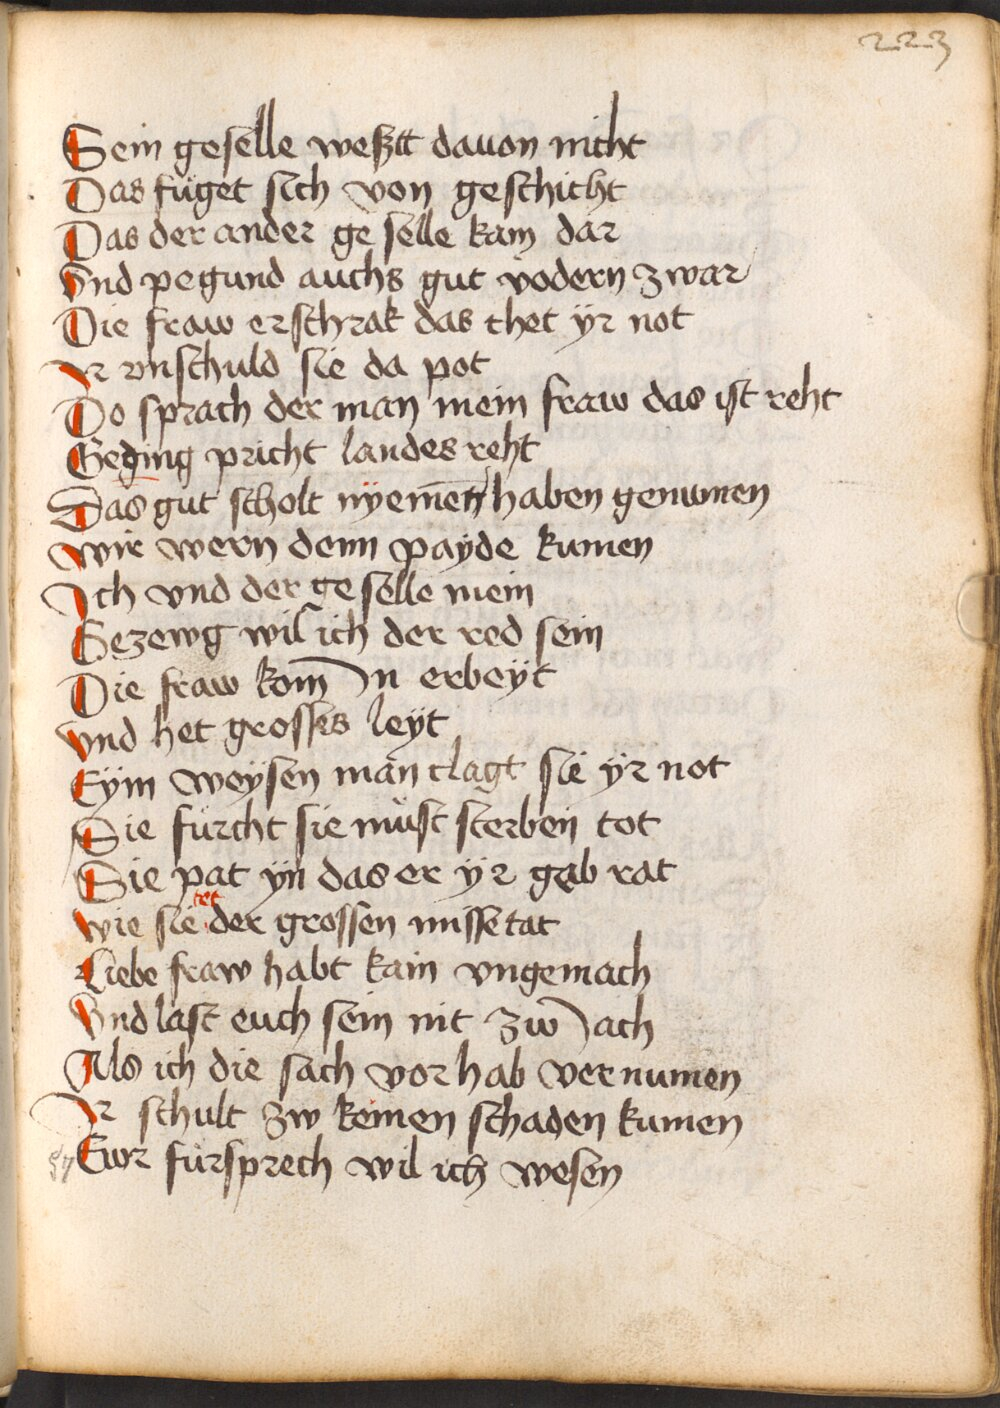 223
Sein geselle weßtt dauon nicht
Das füget sich von geschicht
Das der ander ge selle kam dar
Vnd pegund auchs gut vodern zwar
Die fraw erschrak das thet ÿr not
Ir vnschuld sie da pot
Do sprach der man mein fraw das ist reht
Geding pricht landes reht
Das gut scholt nÿemen haben genumen
wir wern denn payde kumen
Ich vnd der ge selle mein
Gezewg wil ich der red sein
Die fraw kom̄ In erbeÿt
vnd het grosses leÿt
Eÿm weÿsen man clagt sie ÿr not
Sie fürcht sie müst sterben tot
Sie pat ÿn das er ÿr gab rat
wie sie tet der grossen missetat
Liebe fraw habt kain vngemach
Vnd last euch sein nit zw Iach
Als ich die sach vor hab vernumen
Ir schült zw keinen schaden kumen
Ewr fürsprech wil ich wesen